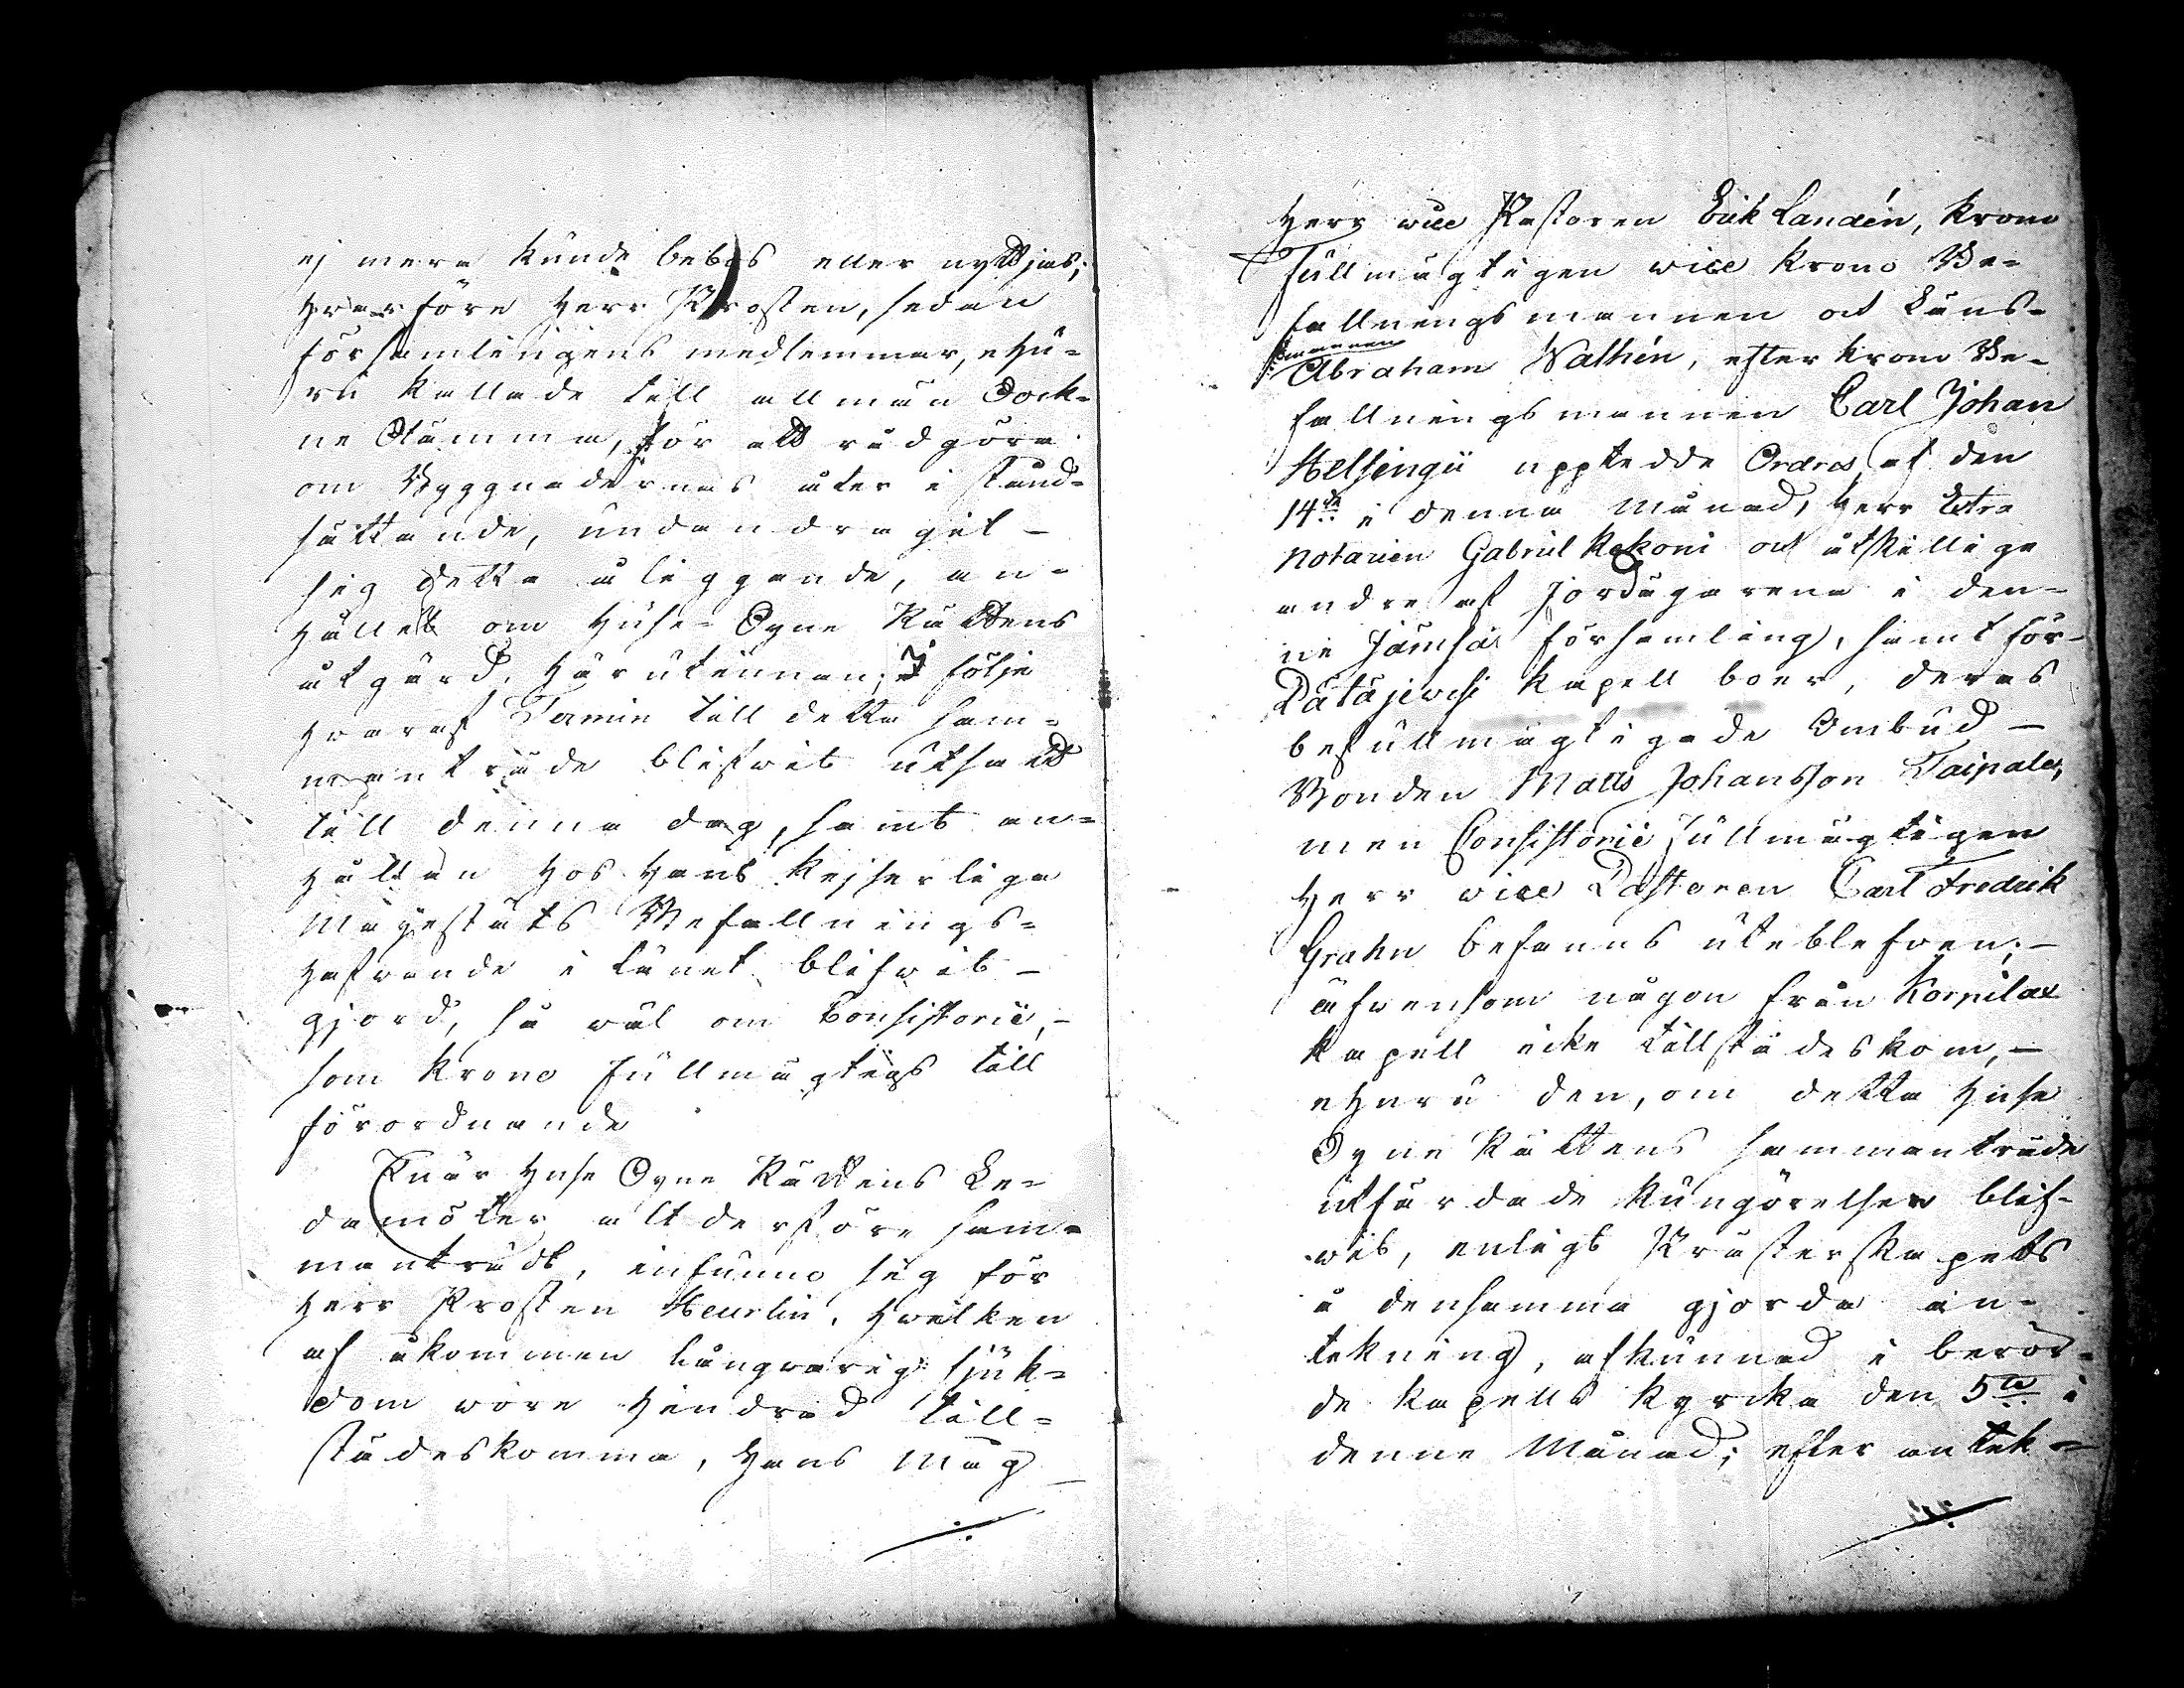 ej mera kunde bebos eller nyttjas;
Hvarföre Herr Prosten, sedan
församlingens medlemmar, ehu-
ru kallade till allmän Sock-
ne Stämma, för att rådgöra
om Byggnadernas åter i stånd-
sättande, undandragit
sig detta åliggande, an-
hållit om Huse-Syne Rättens
åtgärd härutinnan; i följe
hvaraf Termin till detta sam-
manträde blifwit utsatt
till denna dag, samt an-
hållan hos Hans Kejserliga
Majestäts Befallnings-
hafwande i länet blifwit
gjord, så wäl om Consistorii,
som Krono Fullmägtigs till
förordnande
När Huse Syne Rättens Le-
damöter alltderföre sam-
manträdt, infunno sig för
Herr Prosten Heurlin, hvilken
af åkommen långvarig sjuk-
dom vore hindrad till-
städeskomma, Hans Måg
Herr vice Pastoren Erik Landén, Krono
Fullmägtigen vice Krono Be-
fallningsmannen och Läns-
mannen
Abraham Walhén, efter Krono Be-
fallningsmannen Carl Johan
Helsingii upptedde Ordres af den
14de i denna Månad, Herr Extra
Notarien Gabriel Kekoni och åtskillige
andre af Jordägarena i den-
ne Jämsä församling, samt för
Pätäjewesi Kapell boer, deras
befullmägtigade Ombud
Bonden Matts Johansson Taipale,
men Consistorii fullmägtigen
Herr vice Pastoren Carl Fredrik
Grahn befanns uteblefven;
äfvensom någon från Korpilax
Kapell icke tillstädeskom,
ehuru den, om detta Huse
Syne Rättens sammanträde
utfärdade Kungörelsen blif-
wit, enligt Prästerskapets
å densamma gjorda an-
tekning, afkunnad i berör-
de Kapells Kyrcka den 5te i
denne Månad; efter antek-